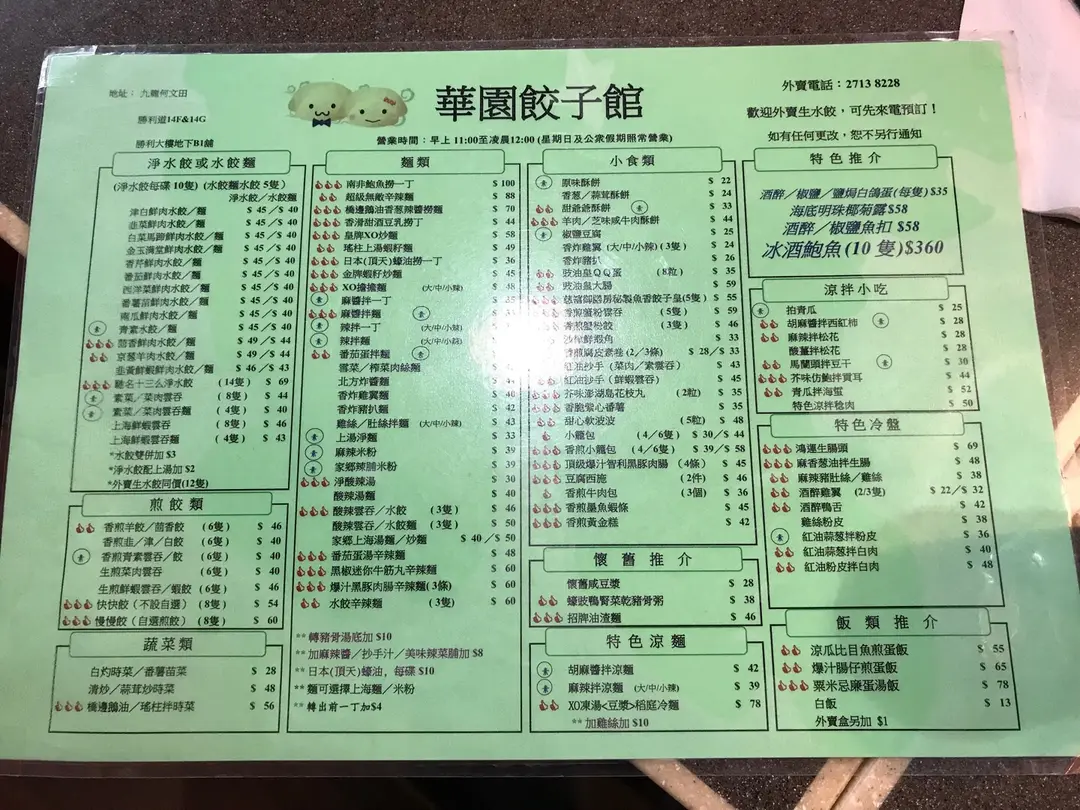 地址： 九龍何文田
勝利道14F&14G
勝利大樓地下B1舖
華園餃子館
營業時間：早上 11:00至凌晨12:00 (星期日及公眾假期照常營業)
外賣電話：2713 8228
歡迎外賣生水餃，可先來電預訂！
如有任何更改，恕不另行通知
淨水餃或水餃麵
(淨水餃每碟 10隻) (水餃麵水餃 5隻)
淨水餃／水餃麵
津白鮮肉水餃／麵 $ 45／$ 40
韭菜鮮肉水餃／麵 $ 45／$ 40
白菜馬蹄鮮肉水餃／麵 $ 45／$ 40
金玉滿堂鮮肉水餃／麵 $ 45／$ 40
香芹鮮肉水餃／麵 $ 45／$ 40
番茄鮮肉水餃／麵 $ 45／$ 40
西洋菜鮮肉水餃／麵 $ 45／$ 40
番薯苗鮮肉水餃／麵 $ 45／$ 40
南瓜鮮肉水餃／麵 $ 45／$ 40
素 青素水餃／麵 $ 45／$ 40
茴香鮮肉水餃／麵 $ 49／$ 44
京葱羊肉水餃／麵 $ 49／$ 44
韭黃鮮蝦鮮肉水餃／麵 $ 46／$ 43
馳名十三么淨水餃 (14隻) $ 69
素 素菜／菜肉雲吞 (8隻) $ 44
素 素菜／菜肉雲吞麵 (4隻) $ 40
上海鮮蝦雲吞 (8隻) $ 46
上海鮮蝦雲吞麵 (4隻) $ 43
*水餃雙併加 $3
*淨水餃配上湯加 $2
*外賣生水餃同價(12隻)
煎餃類
香煎羊餃／茴香餃 (6隻) $ 46
香煎韭／津／白餃 (6隻) $ 40
素 香煎青素雲吞／餃 (6隻) $ 40
生煎菜肉雲吞 (6隻) $ 40
生煎鮮蝦雲吞／蝦餃 (6隻) $ 46
快快餃 (不設自選) (8隻) $ 54
慢慢餃 (自選煎餃) (8隻) $ 60
蔬菜類
白灼時菜／番薯苗菜 $ 28
清炒／蒜茸炒時菜 $ 48
橋邊鵝油／瑤柱拌時菜 $ 56
麵類
南非鮑魚撈一丁 $ 100
超級無敵辛辣麵 $ 88
橋邊鵝油香葱辣醬撈麵 $ 70
香滑甜酒豆乳撈丁 $ 44
皇牌XO炒麵 $ 58
瑤柱上湯蝦籽麵 $ 49
日本(頂天)蠔油撈一丁 $ 36
金牌蝦籽炒麵 $ 45
XO擔擔麵 (大/中/小辣) $
素 麻醬拌一丁 $
麻醬拌麵 素 $
素 辣拌一丁 (大/中/小辣)
素 辣拌麵 (大/中/小辣)
番茄蛋拌麵 素
雪菜／榨菜肉絲麵
北方炸醬麵
香炸雞翼麵
香炸豬扒麵 $ 42
雞絲／肚絲拌麵 (大/中/小辣) $ 43
素 上湯淨麵 $ 33
素 麻辣米粉 $ 39
素 家鄉辣脯米粉 $ 39
淨酸辣湯 $ 30
酸辣湯麵 $ 40
酸辣雲吞／水餃 (3隻) $ 46
酸辣雲吞／水餃麵 (3隻) $ 50
家鄉上海湯麵／炒麵 $ 40／$ 50
番茄蛋湯辛辣麵 $ 48
黑椒迷你牛筋丸辛辣麵 $ 60
爆汁黑豚肉腸辛辣麵(3條) $ 60
水餃辛辣麵 (3隻) $ 60
** 轉豬骨湯底加 $10
** 加麻辣醬／抄手汁／美味辣菜脯加 $8
** 日本(頂天)蠔油，每碟 $10
** 麵可選擇上海麵／米粉
** 轉出前一丁加$4
小食類
素 原味酥餅 $ 22
香葱／蒜茸酥餅 $ 24
甜爺爺酥餅 素 $ 33
羊肉／芝味咸牛肉酥餅 $ 44
素 椒鹽豆腐 $ 25
香炸雞翼 (大/中/小辣) (3隻) $ 24
香炸豬扒 $ 26
豉油皇ＱＱ蛋 (8粒) $ 35
豉油皇大腸 $ 59
慈禧御膳房秘製魚香餃子皇(5隻) $ 55
香煎蟹粉雲吞 (5隻) $ 59
香煎蟹松餃 (3隻) $ 46
鮮蝦角 $ 33
香煎腐皮素卷 (2／3條) $ 28／$ 33
紅油抄手 (菜肉／素雲吞) $ 43
紅油抄手 (鮮蝦雲吞) $ 45
芥味澎湖島花枝丸 (2粒) $ 35
香脆紫心番薯 $ 35
甜心軟波波 (5粒) $ 48
小籠包 (4／6隻) $ 30／$ 44
香煎小籠包 (4／6隻) $ 39／$ 58
頂級爆汁智利黑豚肉腸 (4條) $ 45
豆腐西施 (2件) $ 46
香煎牛肉包 (3個) $ 36
香煎墨魚蝦條 $ 45
香煎黃金糕 $ 42
懷舊推介
懷舊咸豆漿 $ 28
蠔豉鴨腎菜乾豬骨粥 $ 38
招牌油渣麵 $ 46
特色涼麵
素 胡麻醬拌涼麵 $ 42
素 麻辣拌涼麵 (大/中/小辣) $ 39
XO凍湯<豆漿>稻庭冷麵 $ 78
** 加雞絲加 $10
特色推介
酒醉／椒鹽／鹽焗白鴿蛋(每隻)$35
海底明珠椰菊露$58
酒醉／椒鹽魚扣 $58
冰酒鮑魚(10 隻)$360
涼拌小吃
素 拍青瓜 $ 25
胡麻醬拌西紅柿 素 $ 28
麻辣拌松花 $ 28
酸薑拌松花 $ 28
馬蘭頭拌豆干 素 $ 30
芥味仿鮑拌貢耳 $ 44
青瓜拌海蜇 $ 52
特色涼拌稔肉 $ 50
特色冷盤
鴻運生腸頭 $ 69
麻香葱油拌生腸 $ 48
麻辣豬肚絲／雞絲 $ 38
酒醉雞翼 (2/3隻) $ 22／$ 32
酒醉鴨舌 $ 42
雞絲粉皮 $ 38
素 紅油蒜葱拌粉皮 $ 36
紅油蒜葱拌白肉 $ 40
紅油粉皮拌白肉 $ 48
飯類推介
涼瓜比目魚煎蛋飯 $ 55
爆汁腸仔煎蛋飯 $ 65
粟米忌廉蛋湯飯 $ 78
白飯 $ 13
外賣盒另加 $1